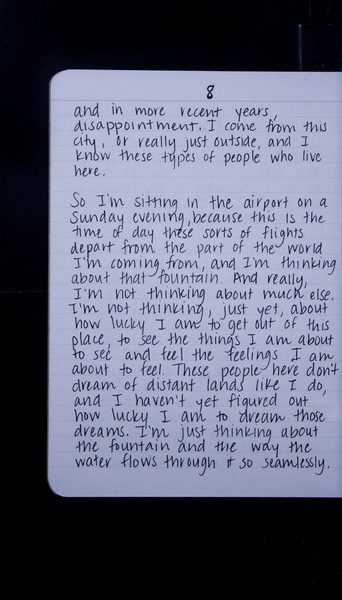 8
and in more recent years,
disappointment. I come from this
city, or really just outside, and I
know these types of people who live
here.
So I'm sitting in the airport on a
Sunday evening, because this is the
time of day these sorts of flights
depart from the part of the world
I'm coming from, and I'm thinking
about that fountain. And really,
I'm not thinking about much else.
I'm not thinking, just yet, about
how lucky I am to get out of this
place, to see the things I am about
to see and feel the feelings I am
about to feel. These people here don't
dream of distant lands like I do,
and I haven't yet figured out
how lucky I am to dream those
dreams. I'm just thinking about
the fountain and the way the
water flows through it so seamlessly.